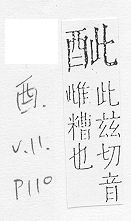 此茲切音
雌糟也
酉.
v.11.
p110